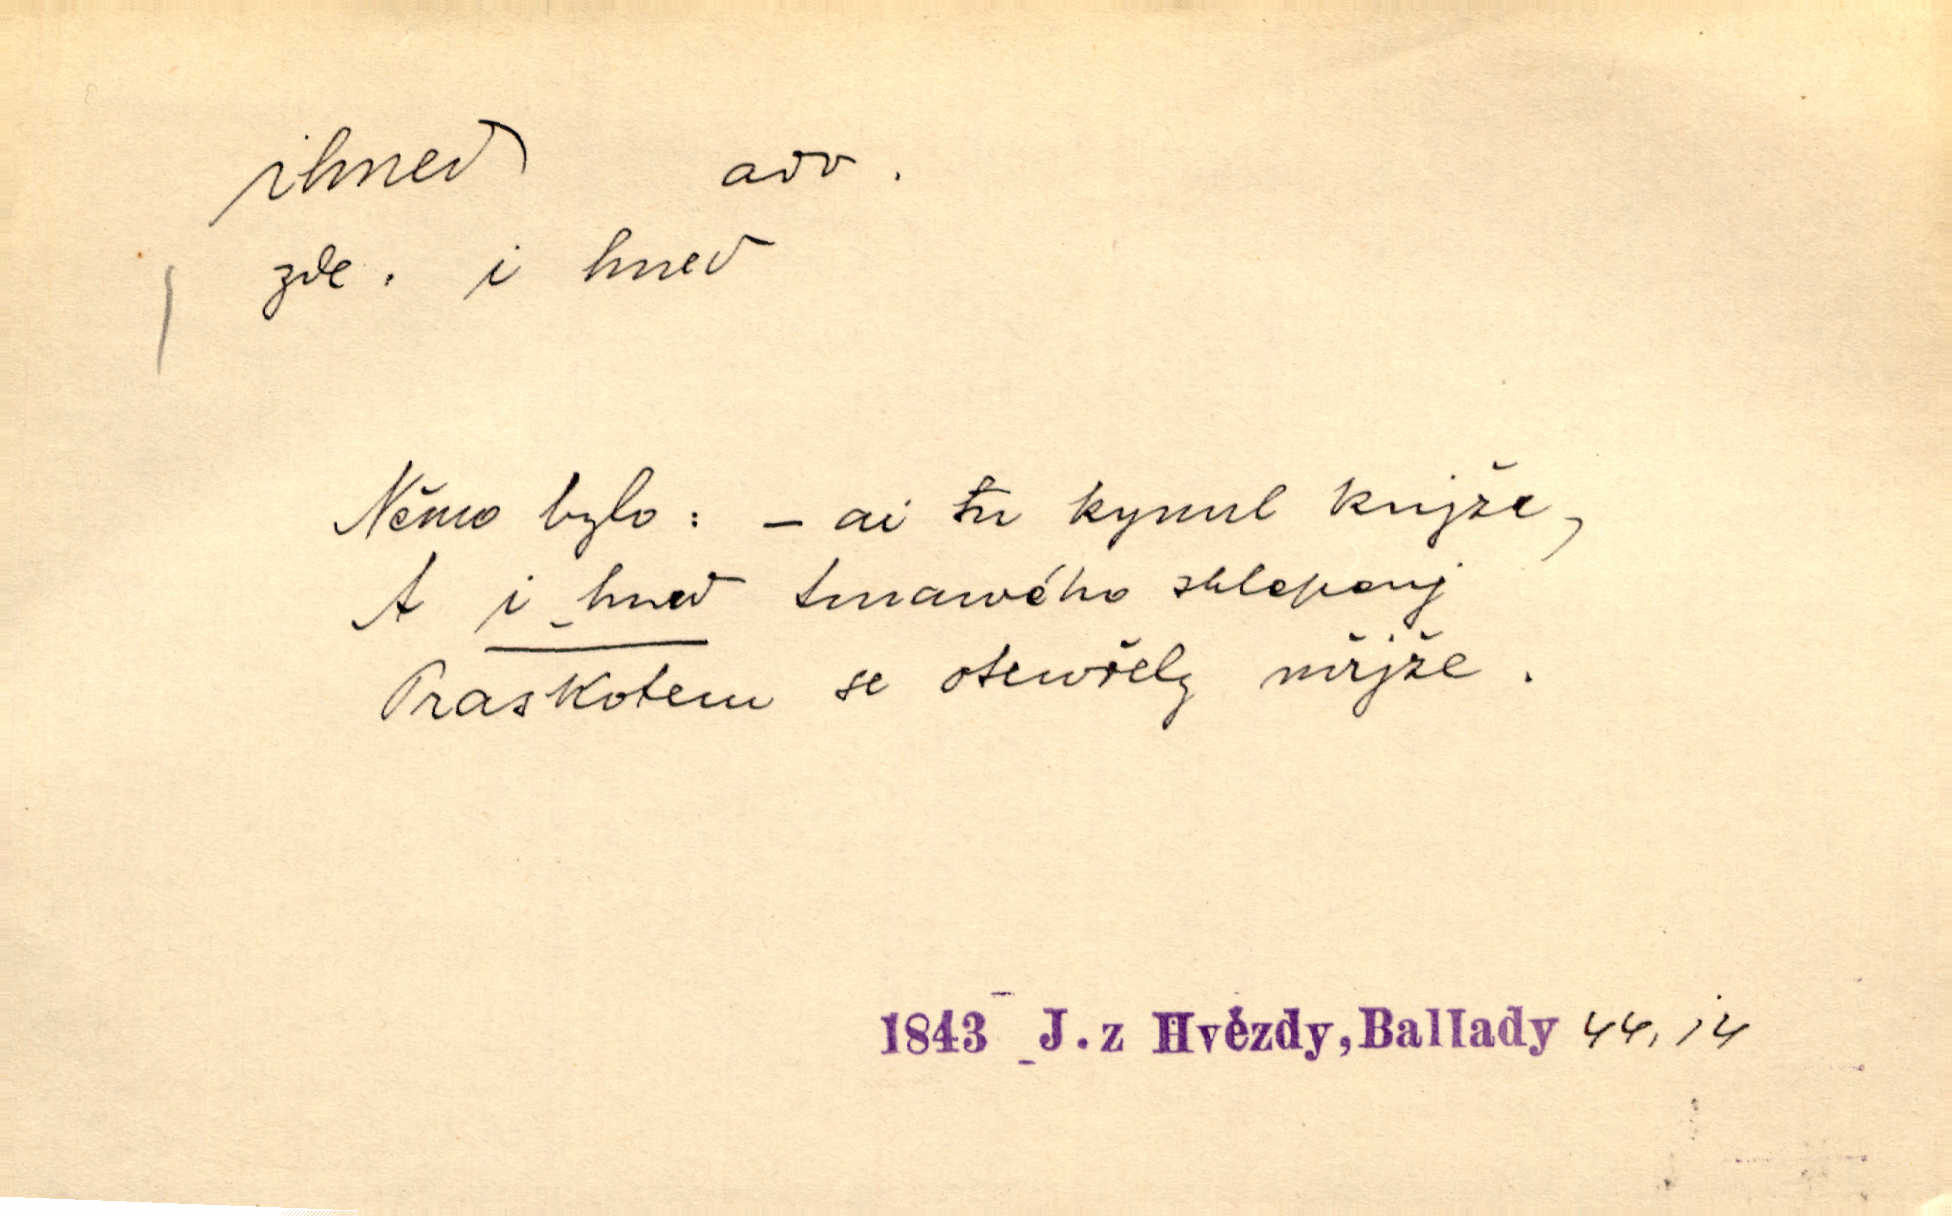 ihneď adv.
zde. i hned
Němo bylo: – ai tu kynul knjže,
A i hned tmawého sklepenj
Praskotem se otewřely mřjže.
1843 J. z Hvězdy, Ballady 44, 14